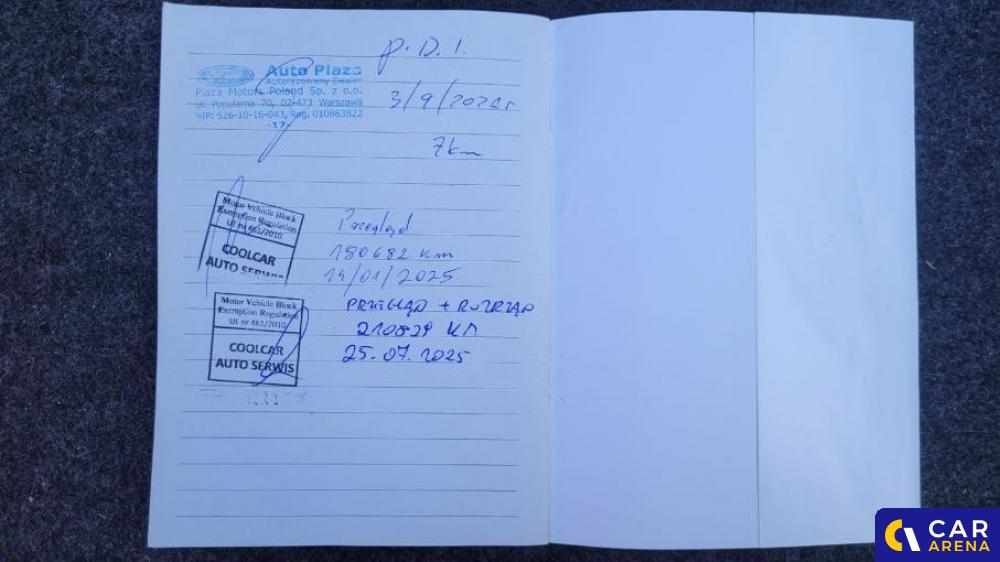 P. D. I.
Auto Plaza
Autoryzowany Dealer
Plaza Motors Poland Sp. z o.o.
ul. Popularna 20, 02-473 Warszawa
NIP: 526-10-16-043, Reg. 010863822
-17-
3/9/2021r
7km
Motor Vehicle Block
Exemption Regulation
UE nr 461/2010
COOLCAR
AUTO SERWIS
Przegląd
180682 km
14/01/2025
Motor Vehicle Block
Exemption Regulation
UE nr 461/2010
COOLCAR
AUTO SERWIS
PRZEGLĄD + ROZRZĄD
210829 KM
25.07.2025
CAR
ARENA